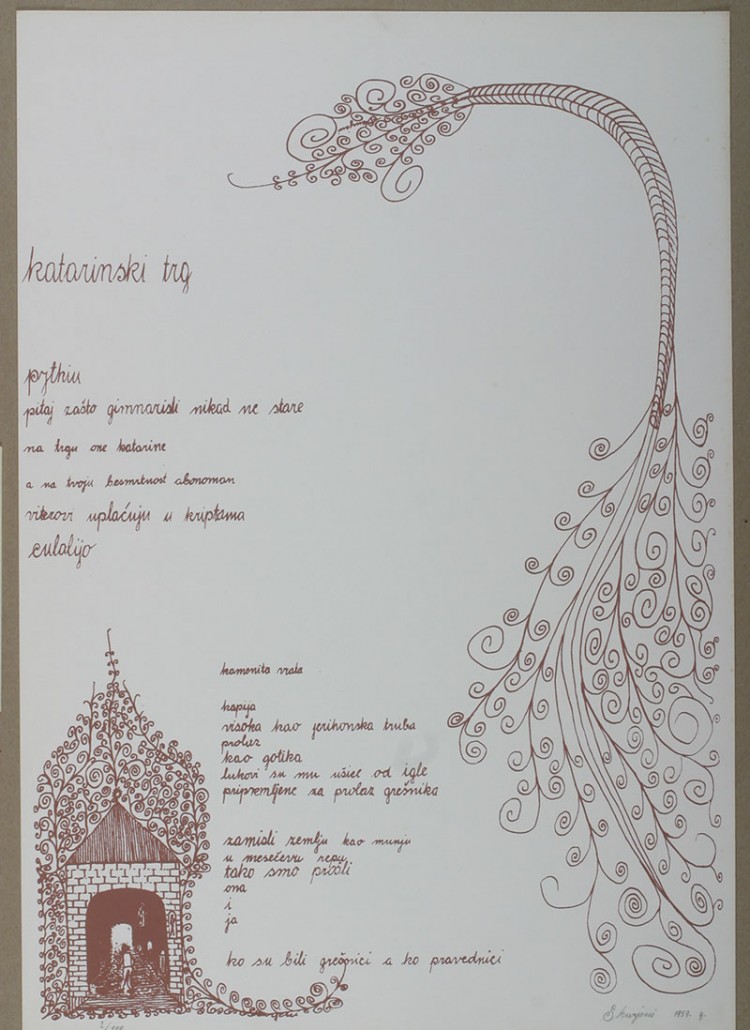 katarinski trg
pythiu
pitaj zašto gimnazisti nikad ne stare
na trgu one katarine
a na tvoju besmrtnost abonoman
vitezovi uplaćuju u kriptama
eulalijo
kamenita vrata
kapija
visoka kao jerihonska truba
prolaz
kao gotika
lukovi su mu ušice od igle
pripremljene za prolaz grešnika
zamisli zemlju kao munju
u mesečevu repu
tako smo prošli
ona
i
ja
ko su bili grešnici a ko pravednici